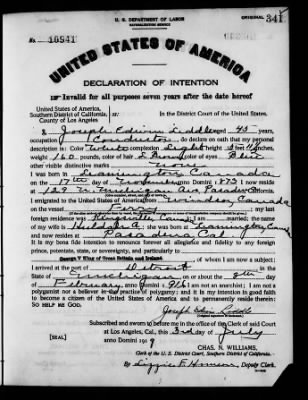 U. S. DEPARTMENT OF LABOR
NATURALIZATION SERVICE
ORIGINAL 341
No. 10541
UNITED STATES OF AMERICA
DECLARATION OF INTENTION
Invalid for all purposes seven years after the date hereof
United States of America,
Southern District of California, ss:
County of Los Angeles
In the District Court of the United States.
I, Joseph Edwin Liddle, aged 45 years,
occupation Conductor, do declare on oath that my personal
description is: Color White, complexion Light, height 5 feet inches,
weight 160 pounds, color of hair Brown, color of eyes Blue
other visible distinctive marks none
I was born in Leamington Canada
on the 17th day of, anno Domini 1873; I now reside
at 129 N. Michigan Ave Pasadena
I emigrated to the United States of America from Windsor Canada
on the vessel Ferry; my last
foreign residence was Kingsville Canada; I am married; the name
of my wife is Hulda A; she was born in Leamington Canada
and now resides at Pasadena Cal.
It is my bona fide intention to renounce forever all allegiance and fidelity to any foreign
prince, potentate, state, or sovereignty, and particularly to
George V King of Great Britain and Ireland, of whom I am now a subject;
I arrived at the port of Detroit, in the
State of Michigan, on or about the 8th day
of February, anno Domini 1916; I am not an anarchist; I am not a
polygamist nor a believer in the practice of polygamy; and it is my intention in good faith
to become a citizen of the United States of America and to permanently reside therein:
SO HELP ME GOD.
Joseph Edwin Liddle
(Original signature of declarant)
Subscribed and sworn to before me in the office of the Clerk of said Court
at Los Angeles, Cal., this 3rd day of July
[SEAL]
anno Domini 1919
CHAS. N. WILLIAMS,
Clerk of the U. S. District Court, Southern District of California.
By, Deputy Clerk.